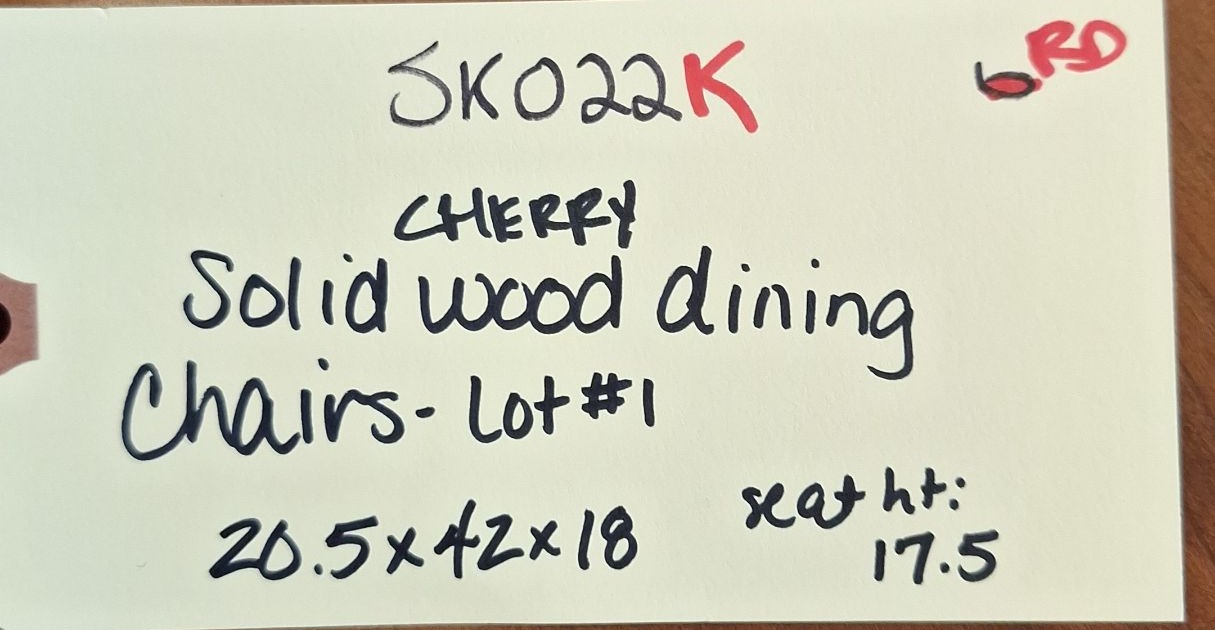 SK022K
6 RD
CHERRY
Solid wood dining
Chairs- Lot #1
20.5x42x18
seat ht:
17.5